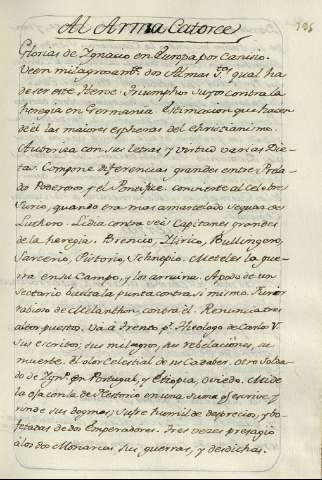 Al Arma Catorce
Glorias de Ygnacio en Europa por Canisio.
Veen milagrosamte. dos Almas Stas. qual ha
de ser este Heroe. Triumphos suyos contra la
heregia en Germania. Estimacion que hacen
de el las maiores espheras del christianismo.
Autoriza con sus letras y virtud varias Die-
tas. Compone diferencias grandes entre Prela-
do Poderoso y el Pontifice. Convierte al celebre
Surio, quando era mas amartelado sequaz de
Luthero. Lidia contra seis Capitanes grandes
de la heregia. Brencio, Ilirico, Bullingero,
Sarcerio, Pistorio, Schnepio. Meteles la gue-
rra en su Campo, y los arruina. Apodo de un
sectario buelta la punta contra si mismo. Furor
rabioso de Melanthon, contra el. Renuncia tres
altos puestos. Va a Trento pr. Theologo de Carlos V.
Sus escritos; sus milagros, sus rebelaciones, su
muerte. El olor Celestial de su Cadaber. Otro Solda-
do de Ygno. en Portugal, y Etiopia, Oviedo. Mide
la osa con la de Nestorio en una suma qe. escrive, y
rinde sus dogmas; sufre humilde deprecios, y bo-
fetadas de dos Emperadores. Tres vezes presagió
á los dos Monarcas sus guerras, y desdichas.